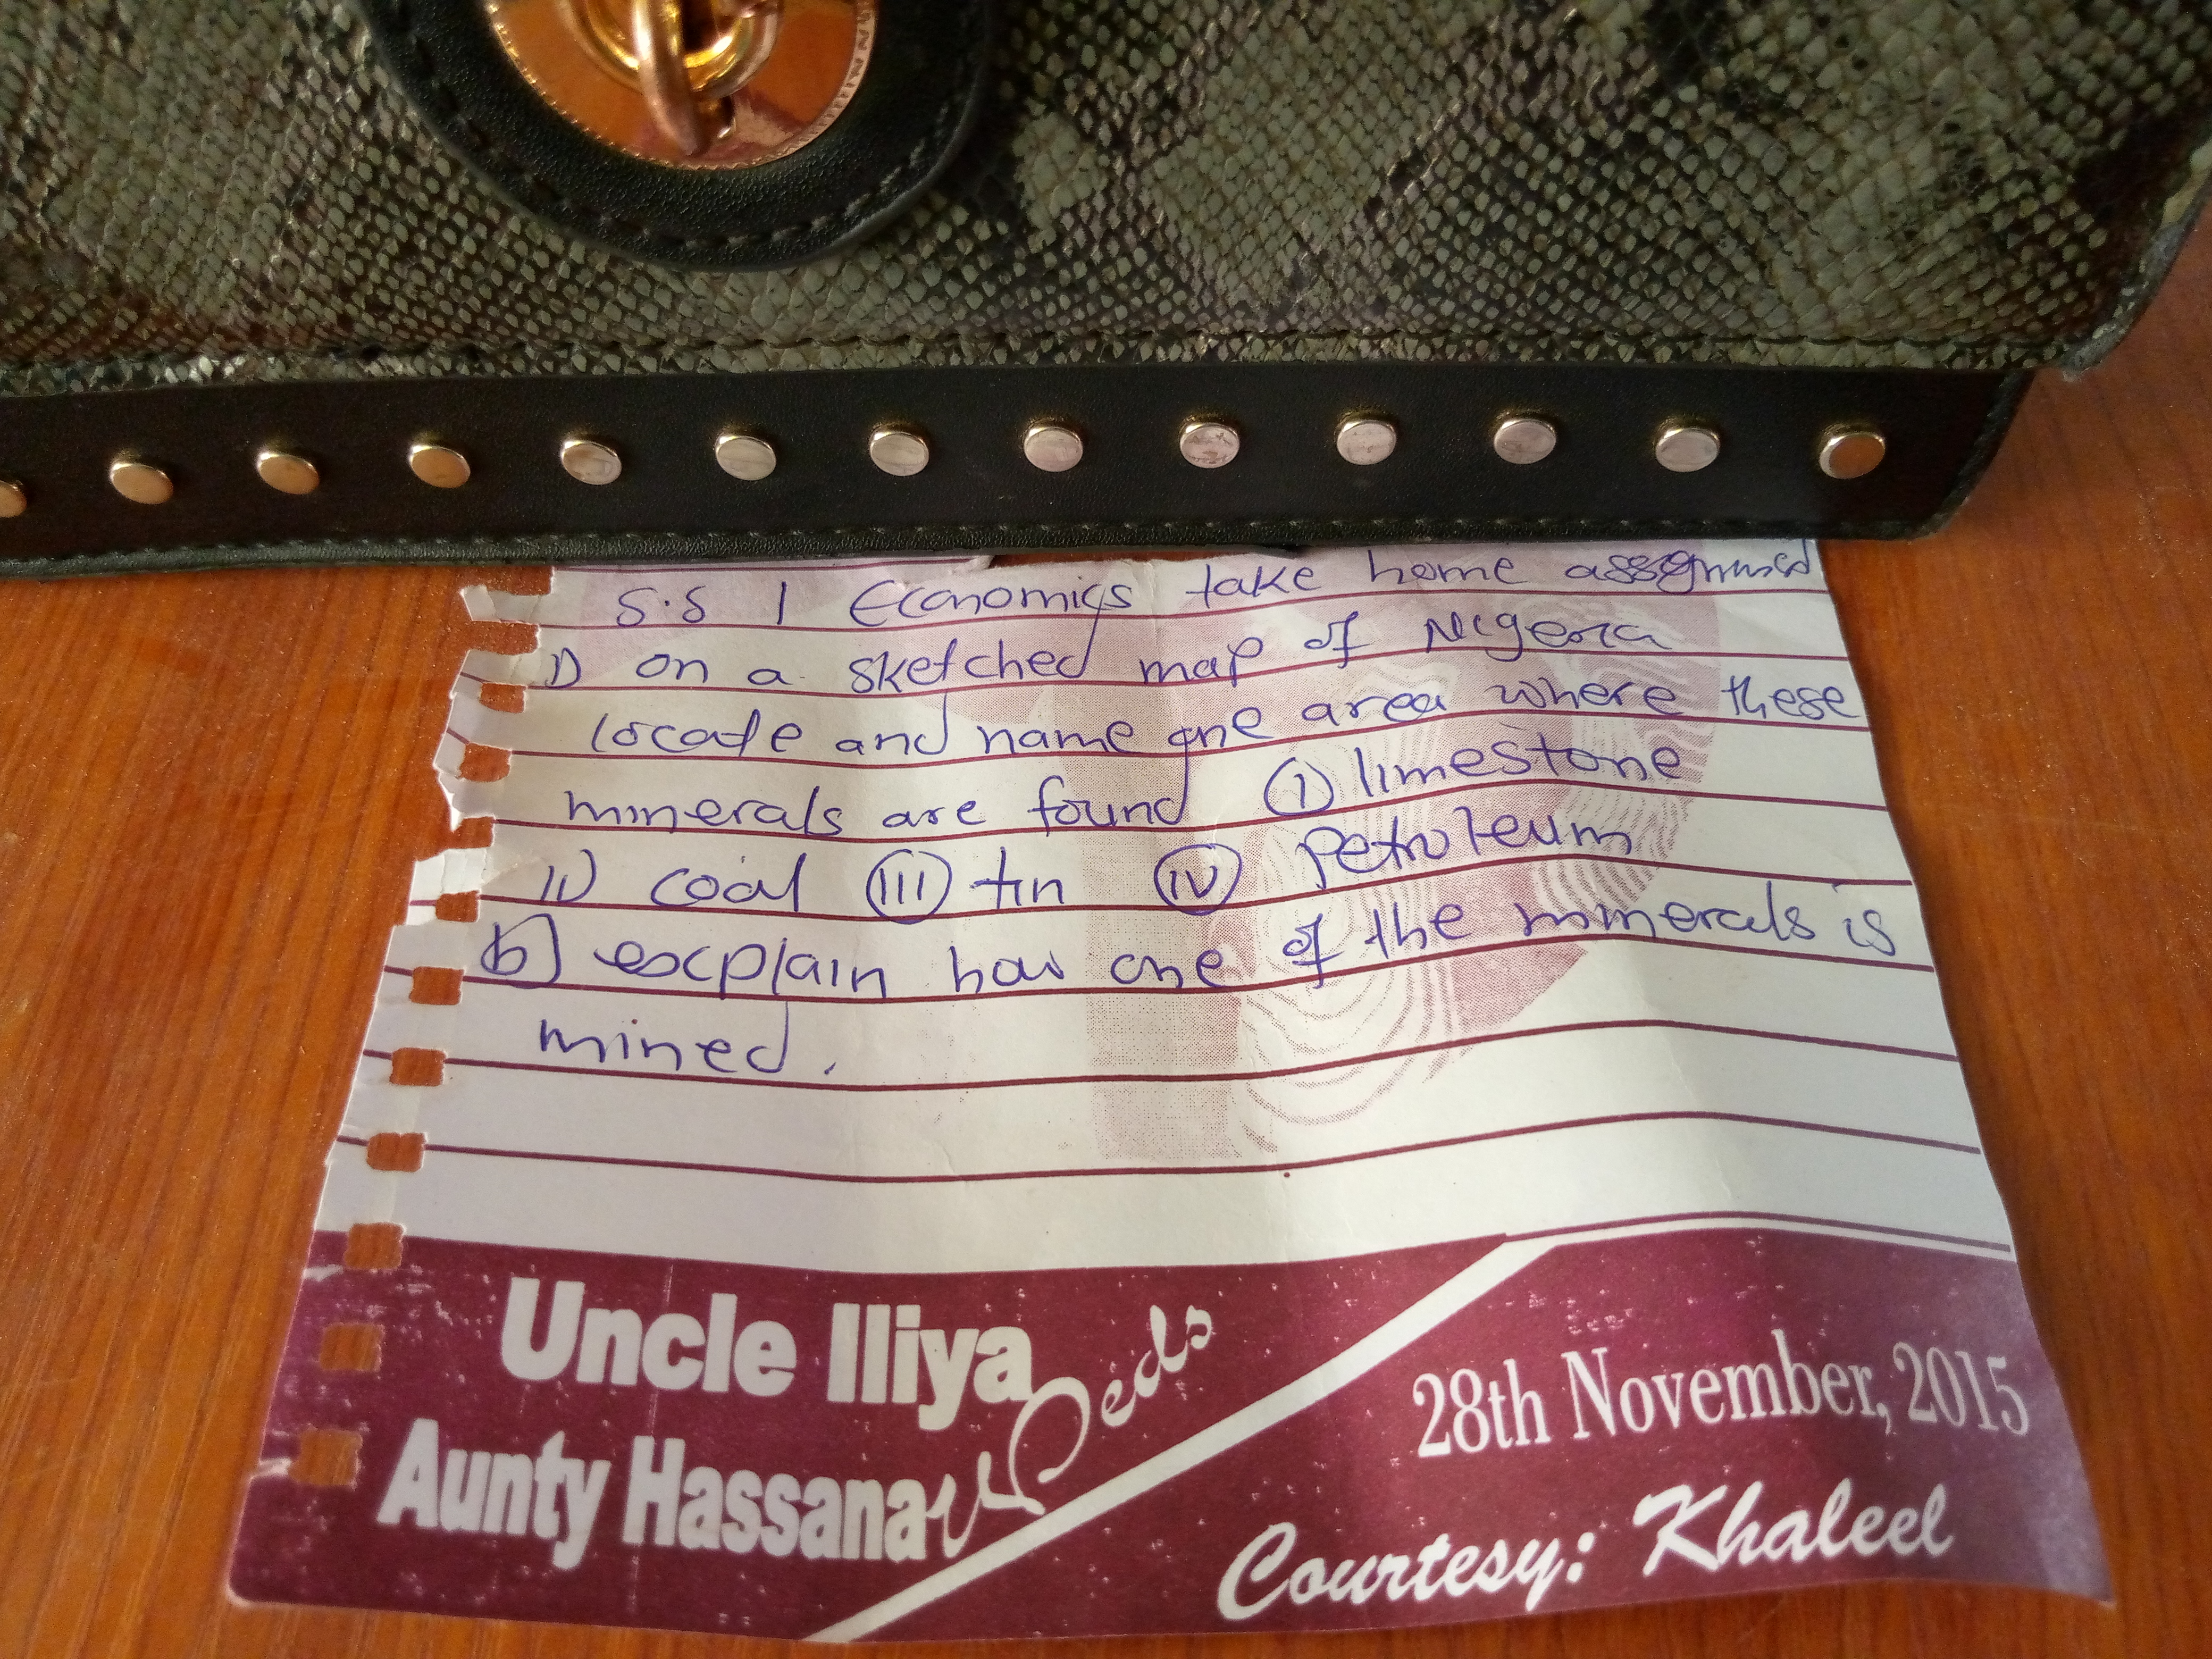 S.S 1 Economics take home assignment
1) on a sketched map of Nigeria
locate and name one area where these
minerals are found (I) limestone
II) coal (III) tin (IV) Petroleum
b) explain how one of the minerals is
mined.
Uncle Iliya
Aunty Hassana
Weds
28th November, 2015
Courtesy: Khaleel